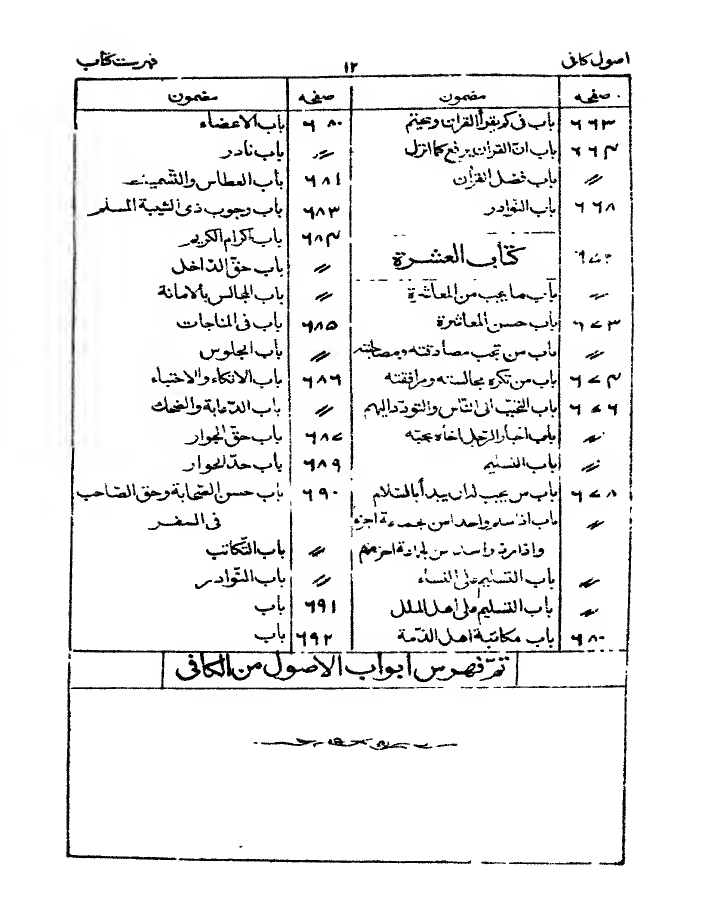 اصول کافی ۱۲ فهرست کتاب
صفحه مضمون
۶۶۳ باب فی کم یقرأ القران ویختم
۶۶۴ باب ان القران یرفع کما انزل
〃 باب فضل القران
۶۶۸ باب النوادر
۶۷۰ کتاب العشرة
〃 باب ما یجب من المعاشرة
۶۷۳ باب حسن المعاشرة
〃 باب من تجب مصادقته ومصاحبته
۶۷۴ باب من تکره مجالسته ومرافقته
۶۷۶ باب التحبب الی الناس والتودد الیهم
〃 باب اخبار الرجل اخاه بحبه
〃 باب التسلیم
۶۷۸ باب من یجب ان یبدأ بالسلام
〃 باب اذا سلم واحد من الجماعة اجزء
واذا رد واحد من الجماعة اجزء عنهم
〃 باب التسلیم علی النساء
〃 باب التسلیم علی اهل الملل
۶۸۰ باب مکاتبة اهل الذمة
صفحه مضمون
۶۸۰ باب الاغضاء
〃 باب نادر
۶۸۱ باب العطاس والتسمیت
۶۸۳ باب وجوب ذی الشیبة المسلم
۶۸۴ باب اکرام الکریم
〃 باب حق الداخل
〃 باب المجالس بالامانة
۶۸۵ باب فی المناجات
〃 باب الجلوس
۶۸۶ باب الاتکاء والاحتباء
〃 باب الدعابة والضحک
۶۸۷ باب حق الجوار
۶۸۹ باب حد الجوار
۶۹۰ باب حسن الصحابة وحق الصاحب
فی السفر
〃 باب التکاتب
〃 باب النوادر
۶۹۱ باب
۶۹۲ باب
تمّ فهرس ابواب الاصول من الکافی